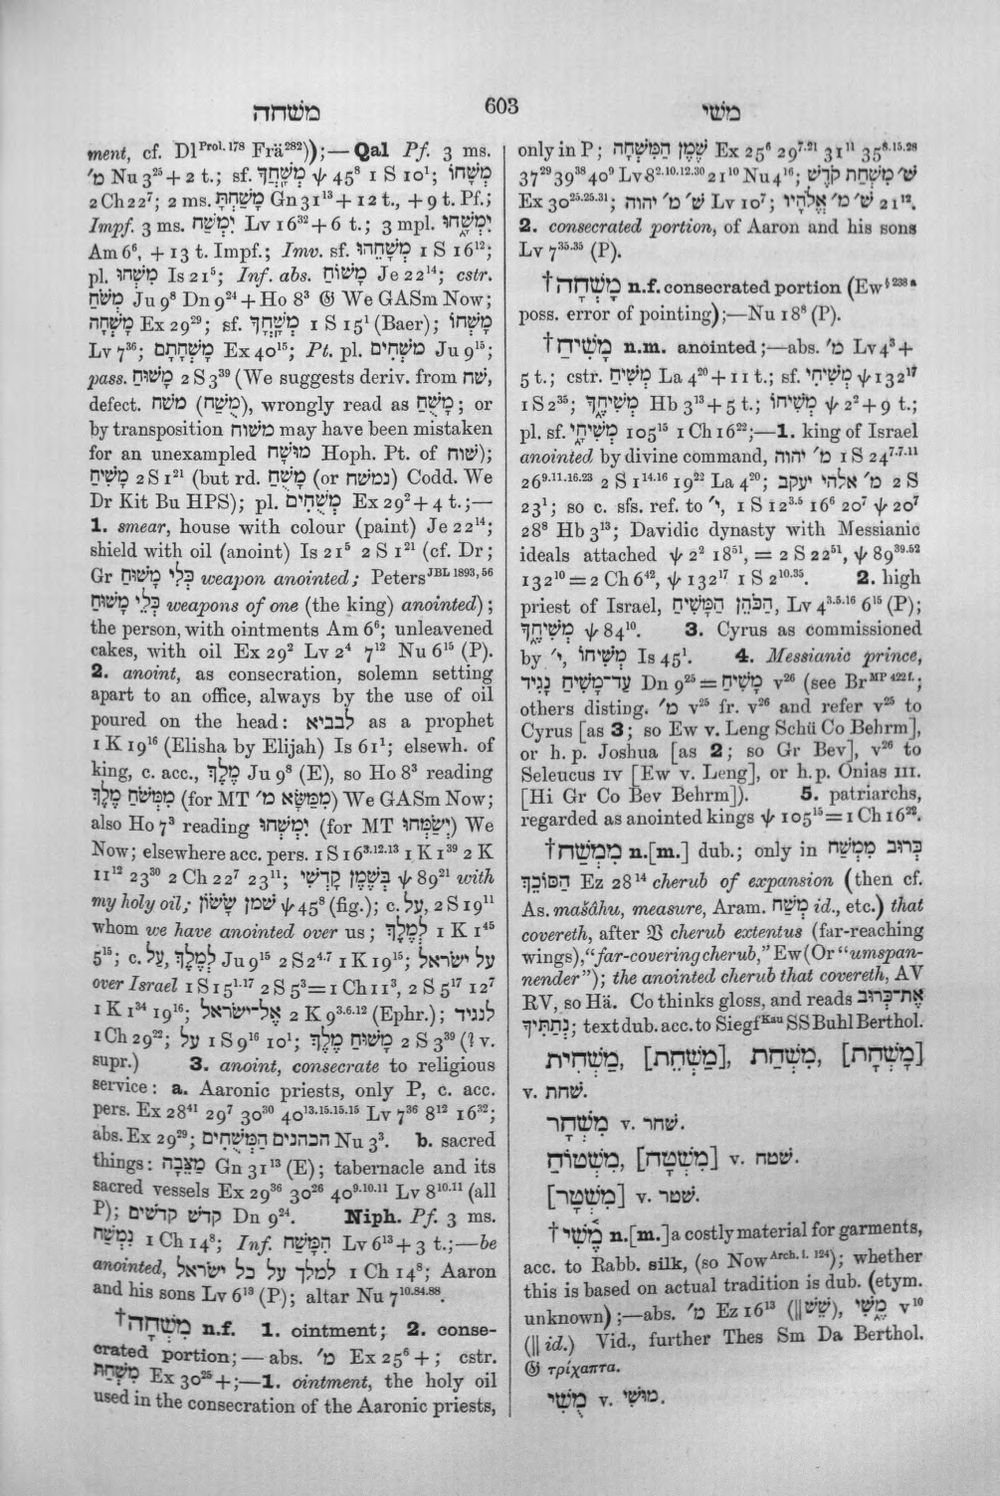 משחה
603
משי
ment, cf. Dl Prol. 178 Frä 282)); — Qal Pf. 3 ms.
מ׳ Nu 3 25 + 2 t.; sf. מְשָׁחֲךָ ψ 45 8 1 S 10 1; מְשָׁחוֹ
2 Ch 22 7; 2 ms. מָשַׁחְתָּ Gn 31 13 + 12 t., + 9 t. Pf.;
Impf. 3 ms. יִמְשַׁח Lv 16 32 + 6 t.; 3 mpl. יִמְשָׁחוּ
Am 6 6, + 13 t. Impf.; Imv. sf. מְשָׁחֵהוּ 1 S 16 12;
pl. מִשְׁחוּ Is 21 5; Inf. abs. מָשׁוֹחַ Je 22 14; cstr.
מְשֹׁחַ Ju 9 8 Dn 9 24 + Ho 8 3 𝔊 We GASm Now;
מָשְׁחָה Ex 29 29; sf. מְשָׁחֳךָ 1 S 15 1 (Baer); מָשְׁחוֹ
Lv 7 36; מָשְׁחָתָם Ex 40 15; Pt. pl. מֹשְׁחִים Ju 9 15;
pass. מָשׁוּחַ 2 S 3 39 (We suggests deriv. from שׁח,
defect. משׁח (מֻשָׁח), wrongly read as מָשֻׁחַ; or
by transposition משׁוח may have been mistaken
for an unexampled מוּשָׁח Hoph. Pt. of שׁוח);
מָשִׁיחַ 2 S 1 21 (but rd. מָשֻׁחַ (or נמשׁח) Codd. We
Dr Kit Bu HPS); pl. מְשֻׁחִים Ex 29 2 + 4 t.; —
1. smear, house with colour (paint) Je 22 14;
shield with oil (anoint) Is 21 5 2 S 1 21 (cf. Dr;
Gr כְּלִי מָשׁוּחַ weapon anointed; Peters JBL 1893, 56
כְּלֵי מָשׁוּחַ weapons of one (the king) anointed);
the person, with ointments Am 6 6; unleavened
cakes, with oil Ex 29 2 Lv 2 4 7 12 Nu 6 15 (P).
2. anoint, as consecration, solemn setting
apart to an office, always by the use of oil
poured on the head: לנביא as a prophet
1 K 19 16 (Elisha by Elijah) Is 61 1; elsewh. of
king, c. acc., מֶלֶךְ Ju 9 8 (E), so Ho 8 3 reading
מִמְּשֹׁחַ מֶלֶךְ (for MT מִמַּשָּׂא מ׳) We GASm Now;
also Ho 7 3 reading יִמְשְׁחוּ (for MT יְשַׂמְּחוּ) We
Now; elsewhere acc. pers. 1 S 16 3.12.13 1 K 1 39 2 K
11 12 23 30 2 Ch 22 7 23 11; בְּשֶׁמֶן קָדְשִׁי ψ 89 21 with
my holy oil; שמן שָׂשׂוֹן ψ 45 8 (fig.); c. עַל, 2 S 19 11
whom we have anointed over us; לְמֶלֶךְ 1 K 1 45
5 15; c. עַל, לְמֶלֶךְ Ju 9 15 2 S 2 4.7 1 K 19 15; על ישראל
over Israel 1 S 15 1.17 2 S 5 3 = 1 Ch 11 3, 2 S 5 17 12 7
1 K 1 34 19 16; אל־ישראל 2 K 9 3.6.12 (Ephr.); לנגיד
1 Ch 29 22; על 1 S 9 16 10 1; מָשׁוּחַ מֶלֶךְ 2 S 3 39 (? v.
supr.) 3. anoint, consecrate to religious
service: a. Aaronic priests, only P, c. acc.
pers. Ex 28 41 29 7 30 30 40 13.15.15.15 Lv 7 36 8 12 16 32;
abs. Ex 29 29; הכהנים הַמְּשֻׁחִים Nu 3 3. b. sacred
things: מַצֵּבָה Gn 31 13 (E); tabernacle and its
sacred vessels Ex 29 36 30 26 40 9.10.11 Lv 8 10.11 (all
P); קדש קדשים Dn 9 24. Niph. Pf. 3 ms.
נִמְשַׁח 1 Ch 14 8; Inf. הִמָּשַׁח Lv 6 13 + 3 t.; — be
anointed, למלך על כל ישראל 1 Ch 14 8; Aaron
and his sons Lv 6 13 (P); altar Nu 7 10.84.88.
†מִשְׁחָה n.f. 1. ointment; 2. conse-
crated portion; — abs. מ׳ Ex 25 6 +; cstr.
מִשְׁחַת Ex 30 25 +; — 1. ointment, the holy oil
used in the consecration of the Aaronic priests,
only in P; שֶׁמֶן הַמִּשְׁחָה Ex 25 6 29 7.21 31 11 35 8.15.28
37 29 39 38 40 9 Lv 8 2.10.12.30 21 10 Nu 4 16; שׁ׳ מִשְׁחַת קֹדֶשׁ
Ex 30 25.25.31; שׁ׳ מ׳ יהוה Lv 10 7; שׁ׳ מ׳ אֱלֹהָיו 21 12.
2. consecrated portion, of Aaron and his sons
Lv 7 35.35 (P).
†מָשְׁחָה n.f. consecrated portion (Ew § 238 a
poss. error of pointing); — Nu 18 8 (P).
†מָשִׁיחַ n.m. anointed; — abs. מ׳ Lv 4 3 +
5 t.; cstr. מְשִׁיחַ La 4 20 + 11 t.; sf. מְשִׁיחִי ψ 132 17
1 S 2 35; מְשִׁיחֶךָ Hb 3 13 + 5 t.; מְשִׁיחוֹ ψ 2 2 + 9 t.;
pl. sf. מְשִׁיחָי 105 15 1 Ch 16 22; — 1. king of Israel
anointed by divine command, מ׳ יהוה 1 S 24 7.7.11
26 9.11.16.23 2 S 1 14.16 19 22 La 4 20; מ׳ אלהי יעקב 2 S
23 1; so c. sfs. ref. to י׳, 1 S 12 3.5 16 6 20 7 ψ 20 7
28 8 Hb 3 13; Davidic dynasty with Messianic
ideals attached ψ 2 2 18 51, = 2 S 22 51, ψ 89 39.52
132 10 = 2 Ch 6 42, ψ 132 17 1 S 2 10.35. 2. high
priest of Israel, הַכֹּהֵן הַמָּשִׁיחַ, Lv 4 3.5.16 6 15 (P);
מְשִׁיחֶךָ ψ 84 10. 3. Cyrus as commissioned
by י׳, מְשִׁיחוֹ Is 45 1. 4. Messianic prince,
עַד־מָשִׁיחַ נָגִיד Dn 9 25 = מָשִׁיחַ v 26 (see Br MP 422 f.;
others disting. מ׳ v 25 fr. v 26 and refer v 25 to
Cyrus [as 3; so Ew v. Leng Schü Co Behrm],
or h. p. Joshua [as 2; so Gr Bev], v 26 to
Seleucus IV [Ew v. Leng], or h.p. Onias III.
[Hi Gr Co Bev Behrm]). 5. patriarchs,
regarded as anointed kings ψ 105 15 = 1 Ch 16 22.
†מִמְשַׁח n.[m.] dub.; only in כְּרוּב מִמְשַׁח
הַסּוֹכֵךְ Ez 28 14 cherub of expansion (then cf.
As. mašâḫu, measure, Aram. מְשַׁח id., etc.) that
covereth, after 𝔙 cherub extentus (far-reaching
wings), “far-covering cherub,” Ew (Or “umspan-
nender”); the anointed cherub that covereth, AV
RV, so Hä. Co thinks gloss, and reads אֶת־כְּרוּב
נְתַתִּיךָ; text dub. acc. to Siegf Kau SS Buhl Berthol.
מַשְׁחִית, [מַשְׁחֵת], מִשְׁחַת, [מָשְׁחָת]
v. שחת.
מִשְׁחָר v. שחר.
מִשְׁטוֹחַ, [מִשְׁטָח] v. שטח.
[מִשְׁטָר] v. שטר.
†מֶשִׁי n.[m.] a costly material for garments,
acc. to Rabb. silk, (so Now Arch. i. 124); whether
this is based on actual tradition is dub. (etym.
unknown); — abs. מ׳ Ez 16 13 (‖ שֵׁשׁ), מֶשִׁי v 10
(‖ id.) Vid., further Thes Sm Da Berthol.
𝔊 τρίχαπτα.
מֻשִׁי v. מוּשִׁי.